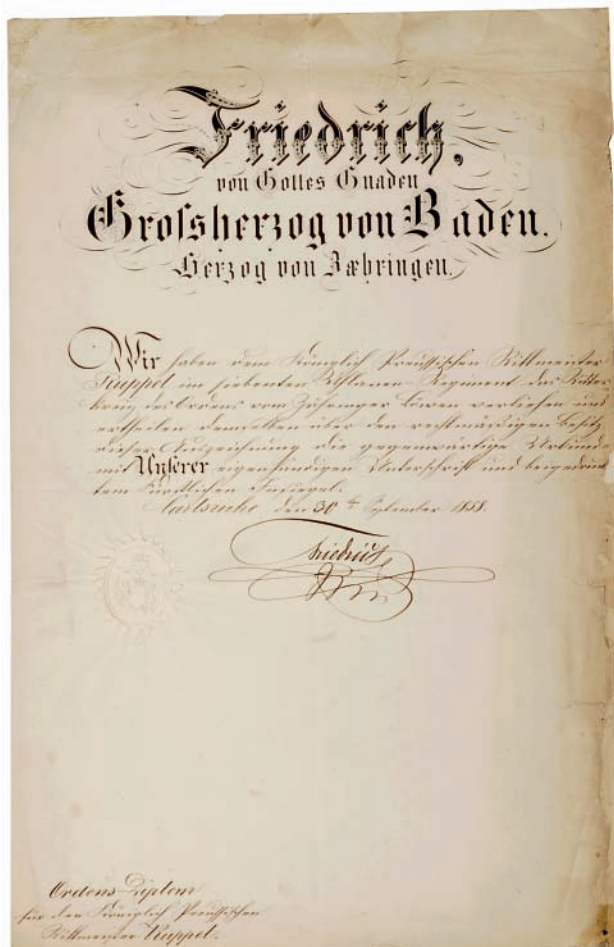 Friedrich,
von Gottes Gnaden
Grossherzog von Baden.
Herzog von Zæhringen.
Wir haben dem Königlich Preussischen Rittmeister
Kuppel im siebenten Uhlanen-Regiment das Ritter-
kreuz des Ordens vom Zähringer Löwen verliehen und
ertheilen demselben über den rechtmäßigen Besitz
dieser Auszeichnung die gegenwärtige Urkunde
mit Unserer eigenhändigen Unterschrift und beigedruck-
tem Fürstlichen Insiegel.
Carlsruhe den 30ten September 1858.
Friedrich
Ordens-Diplom
für den Königlich Preussischen
Rittmeister Kuppel.